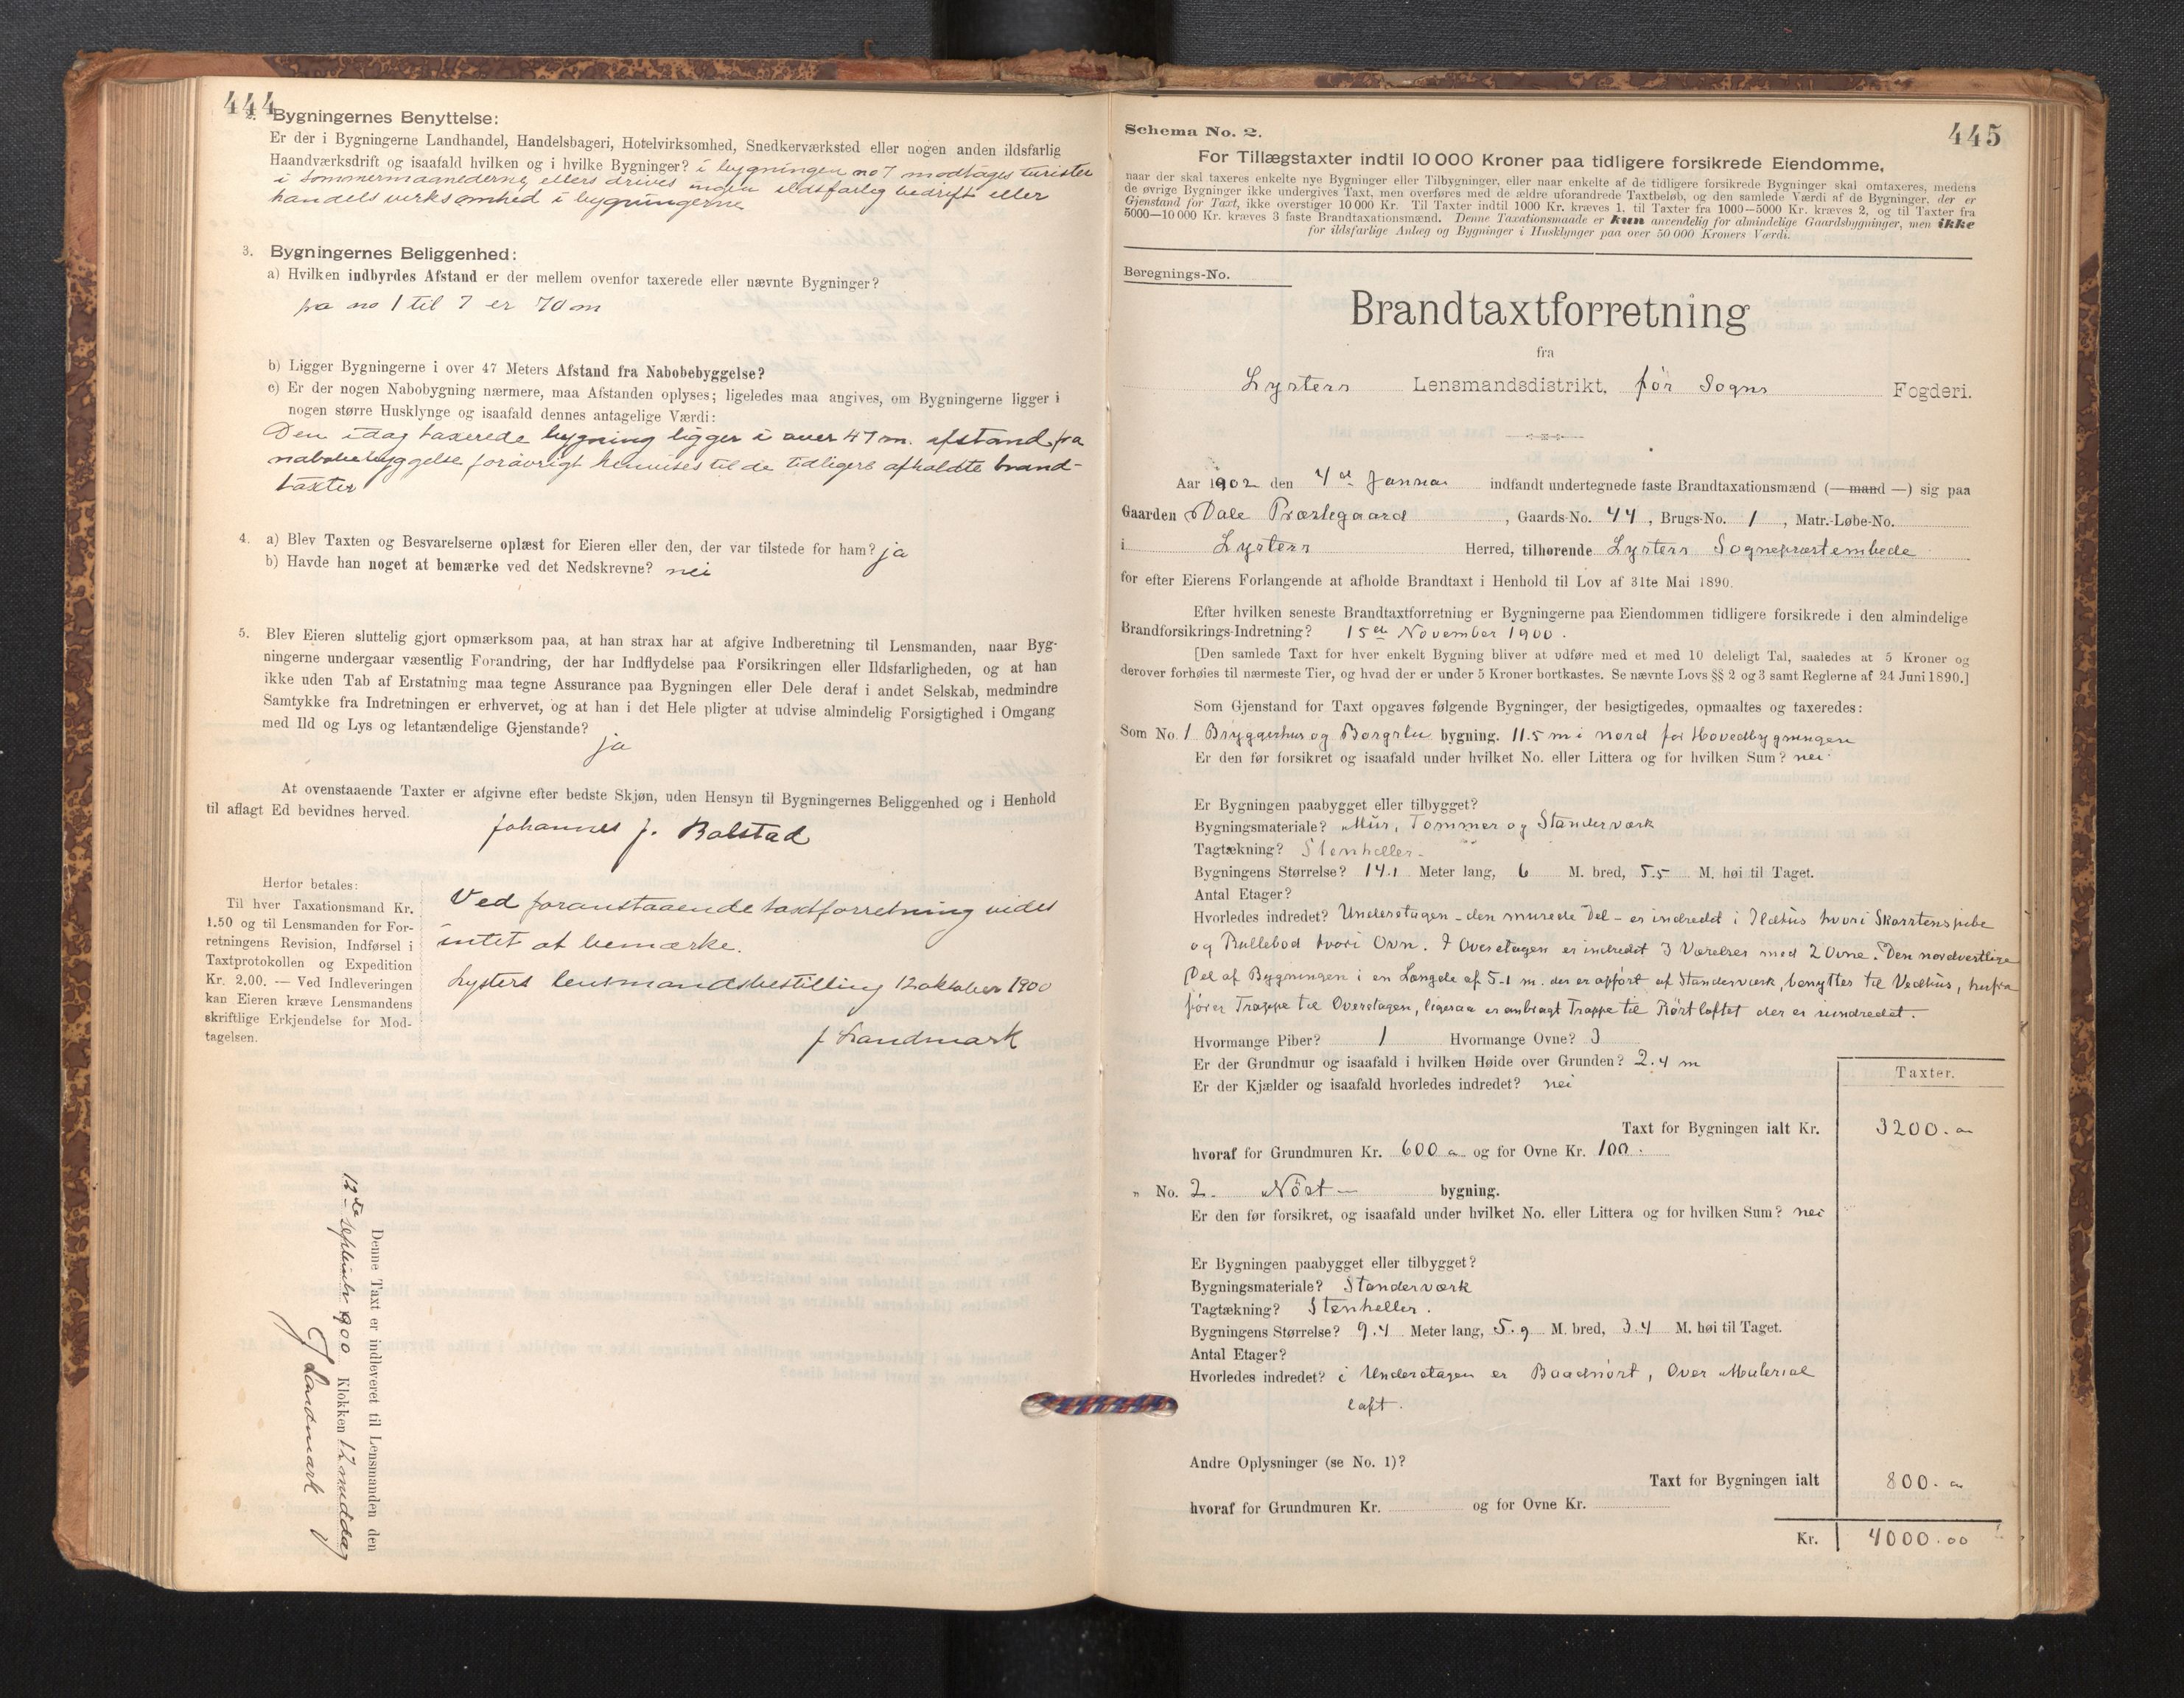 444
2. Bygningernes Benyttelse:
Er der i Bygningerne Landhandel, Handelsbageri, Hotelvirksomhed, Snedkerværksted eller nogen anden ildsfarlig
Haandværksdrift og isaafald hvilken og i hvilke Bygninger? i bygningen no 7 modtages turister
i sommermaanederne ellers drives ingen ildsfarlig bedrift eller
handelsvirksomhed i bygningerne
3. Bygningernes Beliggenhed:
a) Hvilken indbyrdes Afstand er der mellem ovenfor taxerede eller nævnte Bygninger?
fra no 1 til 7 er 70 m
b) Ligger Bygningerne i over 47 Meters Afstand fra Nabobebyggelse?
c) Er der nogen Nabobygning nærmere, maa Afstanden oplyses; ligeledes maa angives, om Bygningerne ligger i
nogen større Husklynge og isaafald dennes antagelige Værdi:
Den idag taxerede bygning ligger i over 47 m. afstand fra
nabobebyggelse forøvrigt henvises til de tidligere afholdte brand-
taxter
4. a) Blev Taxten og Besvarelserne oplæst for Eieren eller den, der var tilstede for ham? ja
b) Havde han noget at bemærke ved det Nedskrevne? nei
5. Blev Eieren sluttelig gjort opmærksom paa, at han strax har at afgive Indberetning til Lensmanden, naar Byg-
ningerne undergaar væsentlig Forandring, der har Indflydelse paa Forsikringen eller Ildsfarligheden, og at han
ikke uden Tab af Erstatning maa tegne Assurance paa Bygningen eller Dele deraf i andet Selskab, medmindre
Samtykke fra Indretningen er erhvervet, og at han i det Hele pligter at udvise almindelig Forsigtighed i Omgang
med Ild og Lys og letantændelige Gjenstande?
ja
At ovenstaaende Taxter er afgivne efter bedste Skjøn, uden Hensyn til Bygningernes Beliggenhed og i Henhold
til aflagt Ed bevidnes herved.
Johannes J. Bolstad
Herfor betales:
Til hver Taxationsmand Kr.
1.50 og til Lensmanden for For-
retningens Revision, Indførsel i
Taxtprotokollen og Expedition
Kr. 2.00. — Ved Indleveringen
kan Eieren kræve Lensmandens
skriftlige Erkjendelse for Mod-
tagelsen.
Ved foranstaaende taxtforretning vides
intet at bemærke.
Lysters lensmandsbestilling 12 oktober 1900
J Landmark
Denne Taxt er indleveret til Lensmanden den
12te september 1900 Klokken 12 middag
J Landmark
445
Schema No. 2.
For Tillægstaxter indtil 10 000 Kroner paa tidligere forsikrede Eiendomme,
naar der skal taxeres enkelte nye Bygninger eller Tilbygninger, eller naar enkelte af de tidligere forsikrede Bygninger skal omtaxeres, medens
de øvrige Bygninger ikke undergives Taxt, men overføres med de ældre uforandrede Taxtbeløb, og den samlede Værdi af de Bygninger, der er
Gjenstand for Taxt, ikke overstiger 10 000 Kr. Til Taxter indtil 1000 Kr. kræves 1, til Taxter fra 1000—5000 Kr. kræves 2, og til Taxter fra
5000—10 000 Kr. kræves 3 faste Brandtaxationsmænd. Denne Taxationsmaade er kun anvendelig for almindelige Gaardsbygninger, men ikke
for ildsfarlige Anlæg og Bygninger i Husklynger paa over 50 000 Kroners Værdi.
Beregnings-No.
Brandtaxtforretning
fra
Lysters Lensmandsdistrikt, för Sogns Fogderi.
Aar 1902 den 4de Januar indfandt undertegnede faste Brandtaxationsmænd (— mand —) sig paa
Gaarden Dale Præstegaard, Gaards-No. 44, Brugs-No. 1, Matr.-Løbe-No.
i Lysters Herred, tilhørende Lysters Sognepræstembede
for efter Eierens Forlangende at afholde Brandtaxt i Henhold til Lov af 31te Mai 1890.
Efter hvilken seneste Brandtaxtforretning er Bygningerne paa Eiendommen tidligere forsikrede i den almindelige
Brandforsikrings-Indretning? 15de November 1900.
[Den samlede Taxt for hver enkelt Bygning bliver at udføre med et med 10 deleligt Tal, saaledes at 5 Kroner og
derover forhøies til nærmeste Tier, og hvad der er under 5 Kroner bortkastes. Se nævnte Lovs §§ 2 og 3 samt Reglerne af 24 Juni 1890.]
Som Gjenstand for Taxt opgaves følgende Bygninger, der besigtigedes, opmaaltes og taxeredes:
Som No. 1 Bryggerhus og Borgstu bygning. 11.5 m i nord for Hovedbygningen
Er den før forsikret og isaafald under hvilket No. eller Littera og for hvilken Sum? nei
Er Bygningen paabygget eller tilbygget?
Bygningsmateriale? Mür, Tømmer og Standerværk
Tagtækning? Stenheller.
Bygningens Størrelse? 14.1 Meter lang, 6 M. bred, 5.5 M. høi til Taget.
Antal Etager?
Hvorledes indredet? Underetagen - den murede Del - er indredet i Ildhus hvori Skorstenspibe
og Rullebod hvori Ovn. I Overetagen er indredet 3 Værelser med 2 Ovne. Den nordvestlige
Del af Bygningen i en Længde af 5.1 m. der er opført af Standerværk, benyttes til Vedhus, herfra
fører Trappe til Overetagen, ligesaa er anbragt Trappe til Röstloftet der er uindredet.
Hvormange Piber? 1 Hvormange Ovne? 3
Er der Grundmur og isaafald i hvilken Høide over Grunden? 2.4 m
Er der Kjælder og isaafald hvorledes indredet? nei
Taxter.
Taxt for Bygningen ialt Kr. 3200.
hvoraf for Grundmuren Kr. 600 og for Ovne Kr. 100.
„ No. 2. Nöst- bygning.
Er den før forsikret, og isaafald under hvilket No. eller Littera og for hvilken Sum? nei
Er Bygningen paabygget eller tilbygget?
Bygningsmateriale? Standerværk
Tagtækning? Stenheller.
Bygningens Størrelse? 9.4 Meter lang, 5.9 M. bred, 3.4 M. høi til Taget.
Antal Etager?
Hvorledes indredet? i Underetagen er Baadnöst, Over Material
loft.
Andre Oplysninger (se No. 1)?
Taxt for Bygningen ialt 800.
hvoraf for Grundmuren Kr. og for Ovne Kr.
Kr. 4000.00